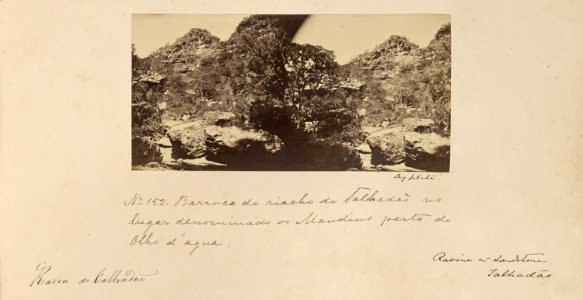 Dry plate
Nº 152. Barroca do riacho do Talhadão no
lugar denominado os Mandins perto do
Olho d'agua.
Ravine in Sandstone
Talhadão
do Talhadão